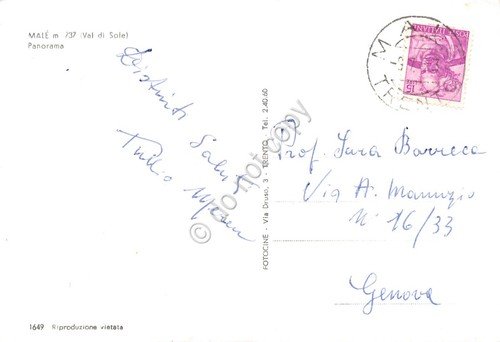 MALÉ m 737 (Val di Sole)
Panorama
Distinti
Saluti
Tullio
do not copy
FOTOCINE - Via Druso, 3 - TRENTO Tel. 2.40.60
POSTE ITALIANE
15
Prof. Sara Barreca
Via A. Manuzio
N° 16/33
Genova
1649 Riproduzione vietata